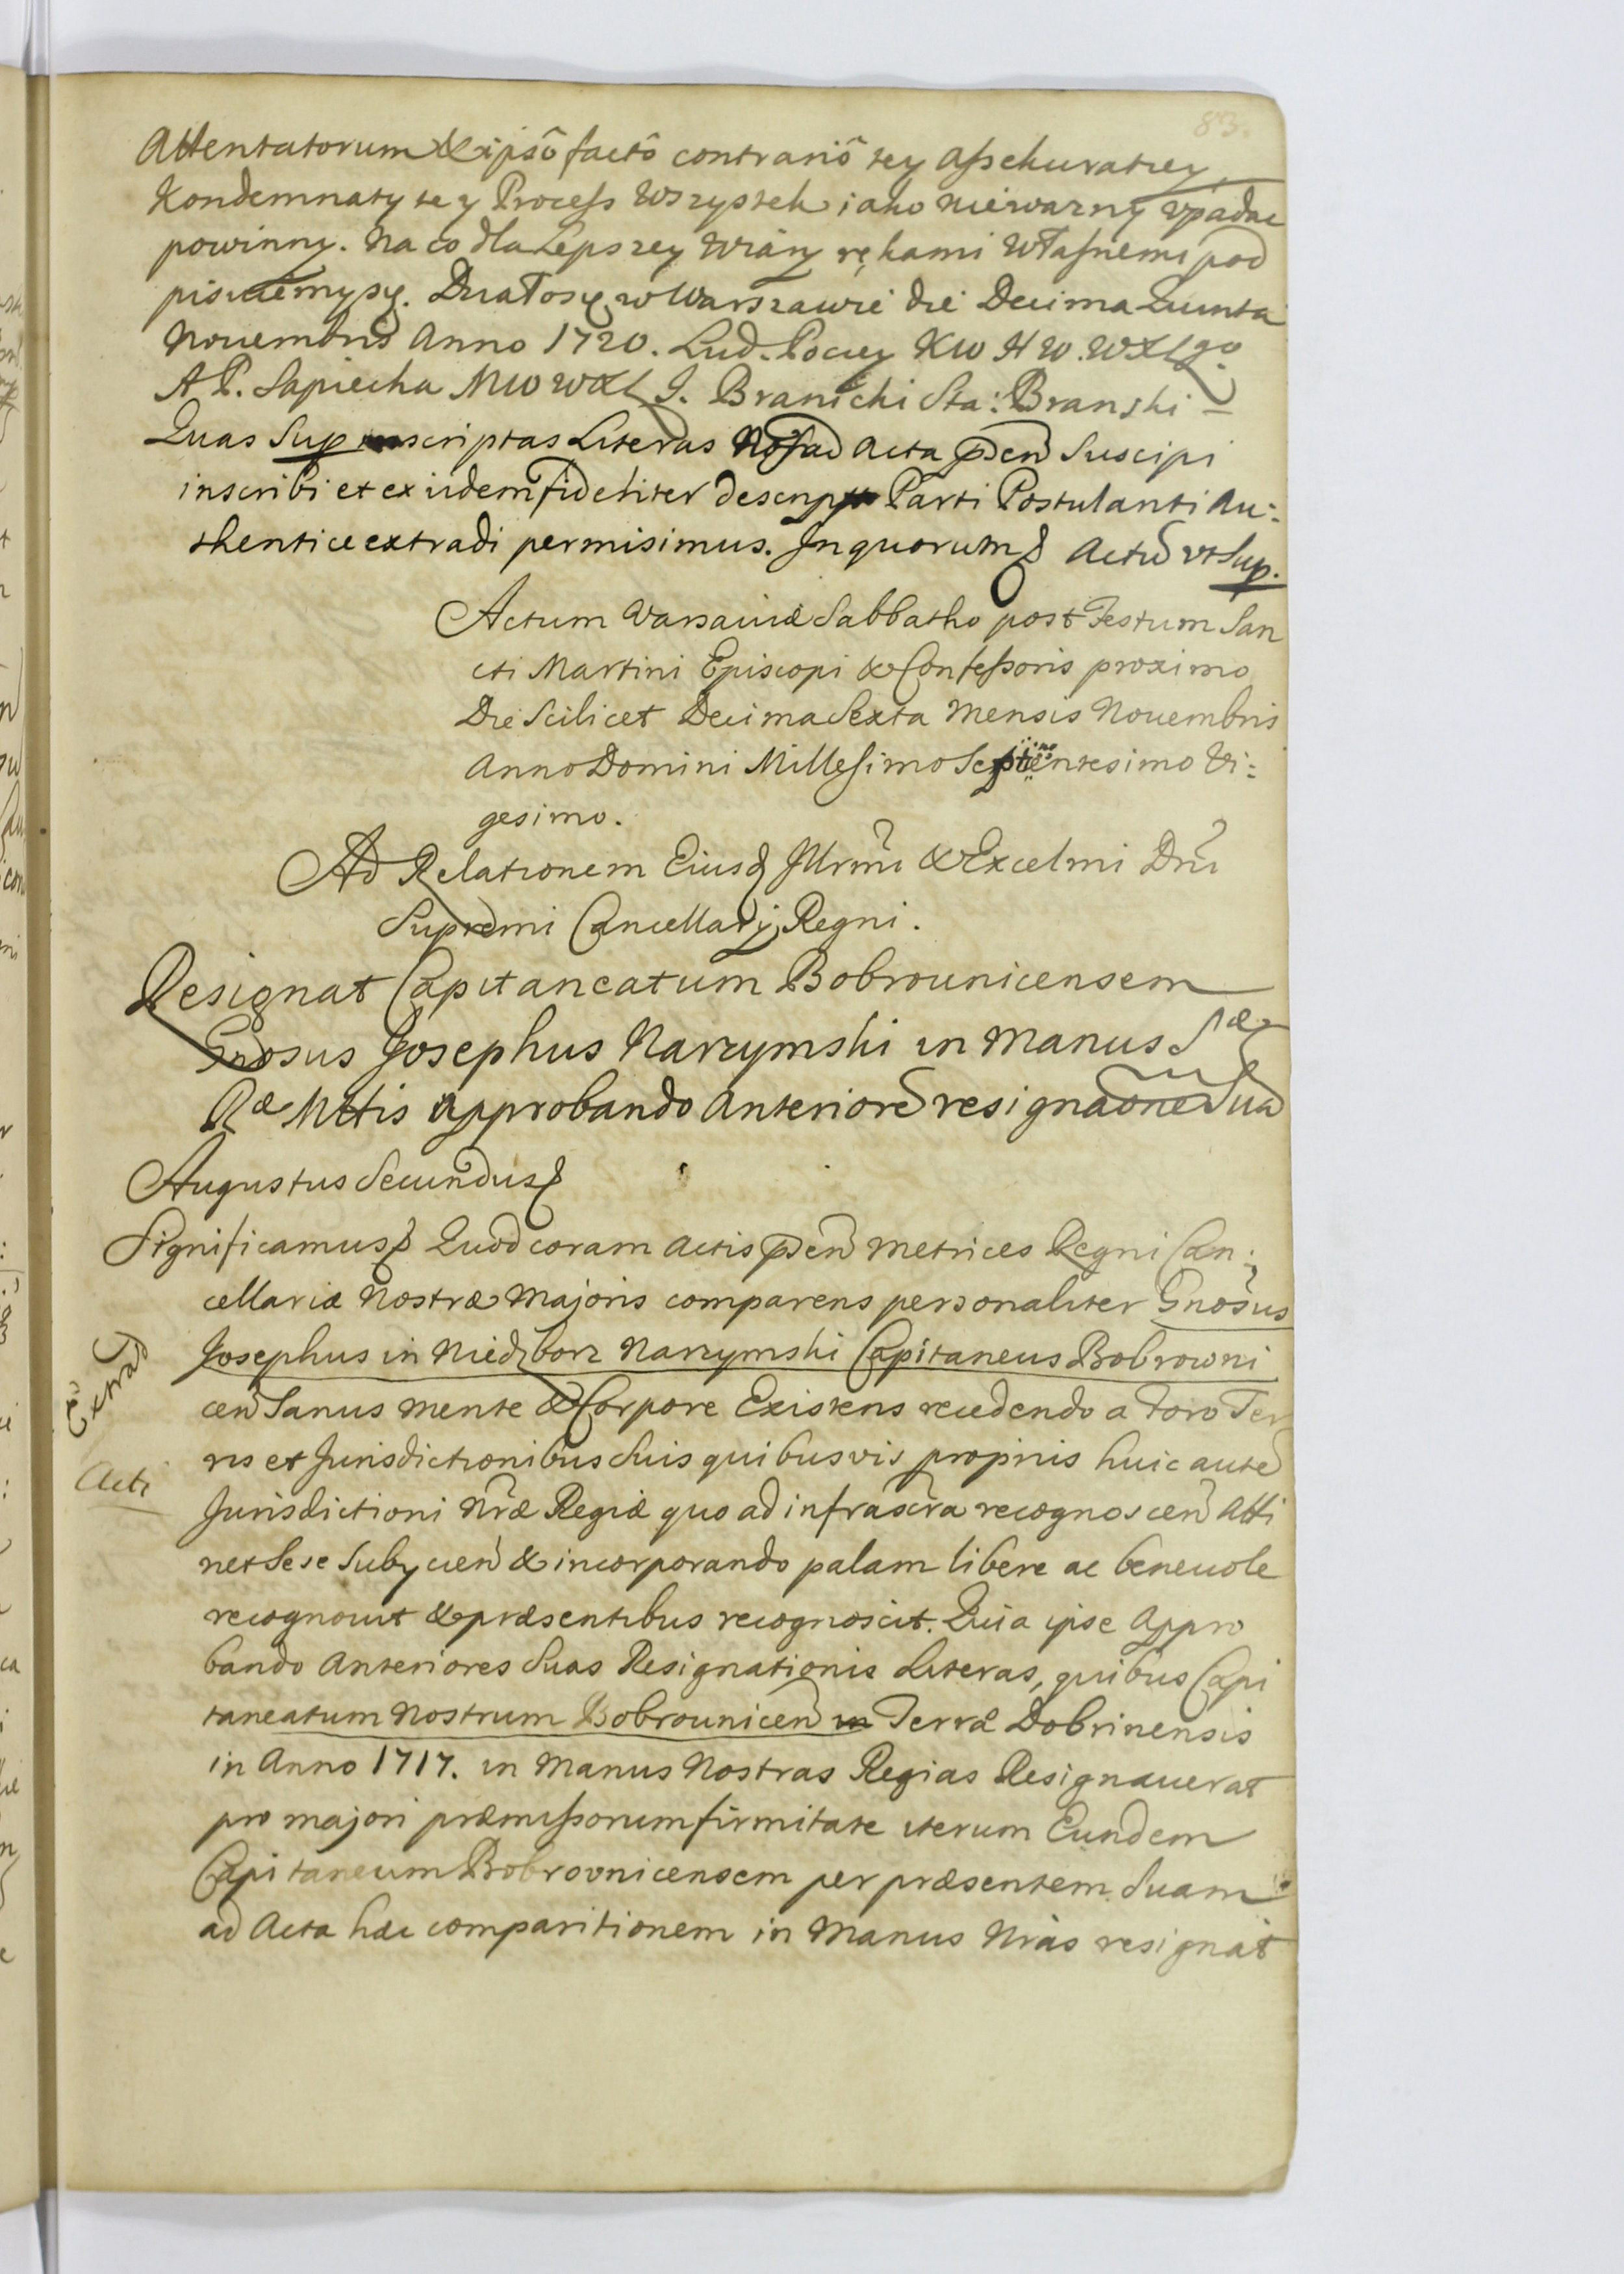 83.
Attentatorum & ipsô factô contrariô tey Assekuratiey,
Kondemnaty tey Process Wszystek iako niewazny vpadac
powinny. Na co dla Lepszey Wiary rękami Własnemi pod
pisuiemy się. Działo się w Warszawie die Decima Quinta
Nouembris Anno 1720. Lud. Pociey KW H W. WXLgo.
A P. Sapiecha M W WXL J. Branicki Sta: Branski –
Quas Suprascriptas Literas Nos ad Acta p̃sen̄ Suscipi
inscribi et ex iisdem fideliter descrip Parti Postulanti Au:
thentice extradi permisimus. In quorum Actū vt Sup.
Actum Varsaviæ Sabbatho post Festum San
cti Martini Episcopi & Confessoris proximo
Die Scilicet Decima Sexta Mensis Nouembris
Anno Domini Millesimo Septentesimo Vi:
gesimo.
Ad Relationem Eiusd Illrm̄i & Excelmi Dn̄i
Supremi Cancellarij Regni.
Resignat Capitaneatum Bobrounicensem
Gnosus Josephus Narzymski in Manus Sæ
Ræ Mttis approbando Anteriorē resignãonē Suã
Augustus Secundus
Significamus Quod coram Actis p̃sen̄ Metrices Regni Can:
cellariæ Nostræ Majoris comparens personaliter Gnōsus
Josephus in Niedzborz Narzymski Capitaneus Bobrowni
cen̄ Sanus mente & Corpore Existens recedendo a Foro Ter
ris et Jurisdictionibus Suis quibusvis propriis huic autē
Jurisdictioni Nr̄æ Regiæ quo ad infrascr̄a recognoscen̄ Atti
net Sese Subycien̄ & incorporando palam libere ac beneuole
recognouit & præsentibus recognoscit. Quia ipse Appro
bando Anteriores Suas Resignationis Literas, quibus Capi
taneatum Nostrum Bobrounicen̄ in Terra Dobrinensis
in Anno 1717. in Manus Nostras Regias Resignauerat
pro majori præmissorum firmitate iterum Eundem
Capitaneum Brobrovnicensem per præsentem Suam
ad Acta hæc comparitionem in Manus Nras resignat
Extrad
Acti